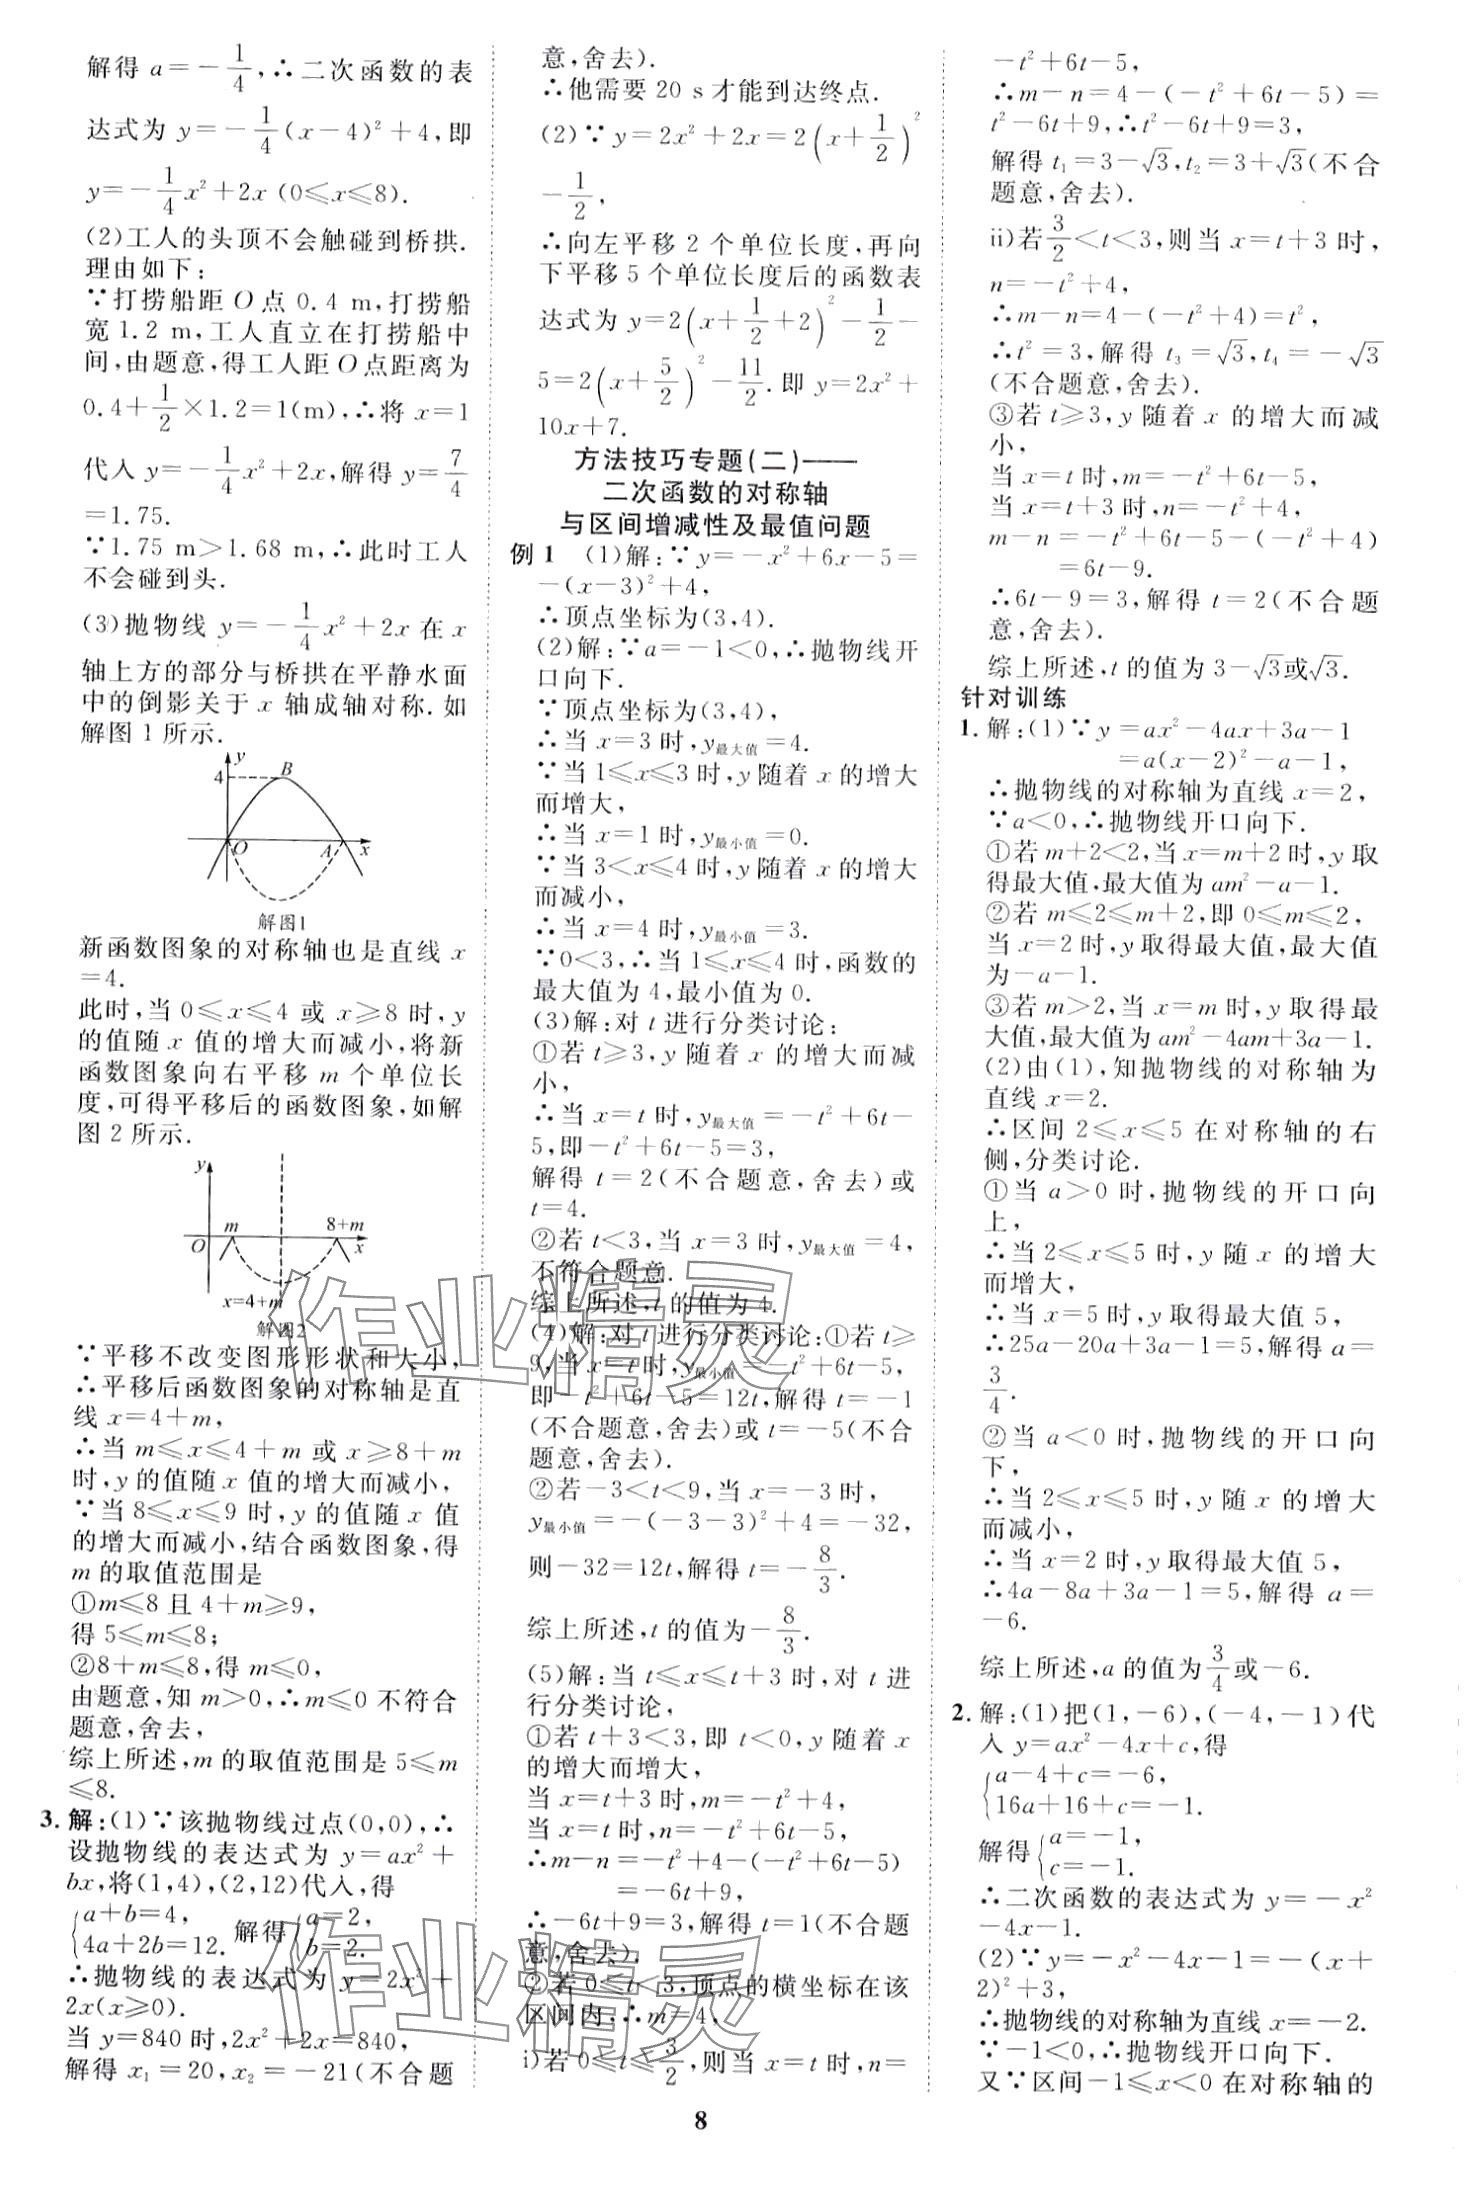 解得 a=-1/4,∴二次函数的表
达式为 y=-1/4(x-4)²+4,即
y=-1/4x²+2x (0≤x≤8).
(2)工人的头顶不会触碰到桥拱.
理由如下:
∵打捞船距 O 点 0.4 m,打捞船
宽 1.2 m,工人直立在打捞船中
间,由题意,得工人距 O 点距离为
0.4+1/2×1.2=1(m),∴将 x=1
代入 y=-1/4x²+2x,解得 y=7/4
=1.75.
∵1.75 m>1.68 m,∴此时工人
不会碰到头.
(3)抛物线 y=-1/4x²+2x 在 x
轴上方的部分与桥拱在平静水面
中的倒影关于 x 轴成轴对称.如
解图 1 所示.
y
4
B
O
A
x
解图1
新函数图象的对称轴也是直线 x
=4.
此时,当 0≤x≤4 或 x≥8 时,y
的值随 x 值的增大而减小,将新
函数图象向右平移 m 个单位长
度,可得平移后的函数图象,如解
图 2 所示.
y
m
8+m
O
x
x=4+m
解图2
∵平移不改变图形形状和大小,
∴平移后函数图象的对称轴是直
线 x=4+m,
∴当 m≤x≤4+m 或 x≥8+m
时,y 的值随 x 值的增大而减小,
∵当 8≤x≤9 时,y 的值随 x 值
的增大而减小,结合函数图象,得
m 的取值范围是
①m≤8 且 4+m≥9,
得 5≤m≤8;
②8+m≤8,得 m≤0,
由题意,知 m>0,∴m≤0 不符合
题意,舍去,
综上所述,m 的取值范围是 5≤m
≤8.
3.解:(1)∵该抛物线过点(0,0),∴
设抛物线的表达式为 y=ax²+
bx,将(1,4),(2,12)代入,得
{a+b=4, 4a+2b=12. 解得{a=2, b=2.
∴抛物线的表达式为 y=2x²+
2x(x≥0).
当 y=840 时,2x²+2x=840,
解得 x₁=20,x₂=-21(不合题
意,舍去).
∴他需要 20 s 才能到达终点.
(2)∵y=2x²+2x=2(x+1/2)²
-1/2,
∴向左平移 2 个单位长度,再向
下平移 5 个单位长度后的函数表
达式为 y=2(x+1/2+2)²-1/2-
5=2(x+5/2)²-11/2.即 y=2x²+
10x+7.
方法技巧专题(二)——
二次函数的对称轴
与区间增减性及最值问题
例 1 (1)解:∵y=-x²+6x-5=
-(x-3)²+4,
∴顶点坐标为(3,4).
(2)解:∵a=-1<0,∴抛物线开
口向下.
∵顶点坐标为(3,4),
∴当 x=3 时,y最大值=4.
∵当 1≤x≤3 时,y 随着 x 的增大
而增大,
∴当 x=1 时,y最小值=0.
∵当 3<x≤4 时,y 随着 x 的增大
而减小,
∴当 x=4 时,y最小值=3.
∵0<3,∴当 1≤x≤4 时,函数的
最大值为 4,最小值为 0.
(3)解:对 t 进行分类讨论:
①若 t≥3,y 随着 x 的增大而减
小,
∴当 x=t 时,y最大值=-t²+6t-
5,即-t²+6t-5=3,
解得 t=2(不合题意,舍去)或
t=4.
②若 t<3,当 x=3 时,y最大值=4,
不符合题意.
综上所述,t 的值为 4.
(4)解:对 t 进行分类讨论:①若 t≥
9,当 x=t 时,y最小值=-t²+6t-5,
即-t²+6t-5=12t,解得 t=-1
(不合题意,舍去)或 t=-5(不合
题意,舍去).
②若-3<t<9,当 x=-3 时,
y最小值=-(-3-3)²+4=-32,
则-32=12t,解得 t=-8/3.
综上所述,t 的值为-8/3.
(5)解:当 t≤x≤t+3 时,对 t 进
行分类讨论,
①若 t+3<3,即 t<0,y 随着 x
的增大而增大,
当 x=t+3 时,m=-t²+4,
当 x=t 时,n=-t²+6t-5,
∴m-n=-t²+4-(-t²+6t-5)
=-6t+9,
∴-6t+9=3,解得 t=1(不合题
意,舍去).
②若 0≤t<3,顶点的横坐标在该
区间内,∴m=4,
i)若 0≤t≤3/2,则当 x=t 时,n=
-t²+6t-5,
∴m-n=4-(-t²+6t-5)=
t²-6t+9,∴t²-6t+9=3,
解得 t₁=3-√3,t₂=3+√3(不合
题意,舍去).
ii)若3/2<t<3,则当 x=t+3 时,
n=-t²+4,
∴m-n=4-(-t²+4)=t²,
∴t²=3,解得 t₃=√3,t₄=-√3
(不合题意,舍去).
③若 t≥3,y 随着 x 的增大而减
小,
当 x=t 时,m=-t²+6t-5,
当 x=t+3 时,n=-t²+4,
m-n=-t²+6t-5-(-t²+4)
=6t-9.
∴6t-9=3,解得 t=2(不合题
意,舍去).
综上所述,t 的值为 3-√3或√3.
针对训练
1.解:(1)∵y=ax²-4ax+3a-1
=a(x-2)²-a-1,
∴抛物线的对称轴为直线 x=2,
∵a<0,∴抛物线开口向下.
①若 m+2<2,当 x=m+2 时,y 取
得最大值,最大值为 am²-a-1.
②若 m≤2≤m+2,即 0≤m≤2,
当 x=2 时,y 取得最大值,最大值
为-a-1.
③若 m>2,当 x=m 时,y 取得最
大值,最大值为 am²-4am+3a-1.
(2)由(1),知抛物线的对称轴为
直线 x=2.
∴区间 2≤x≤5 在对称轴的右
侧,分类讨论.
①当 a>0 时,抛物线的开口向
上,
∴当 2≤x≤5 时,y 随 x 的增大
而增大,
∴当 x=5 时,y 取得最大值 5,
∴25a-20a+3a-1=5,解得 a=
3/4.
②当 a<0 时,抛物线的开口向
下,
∴当 2≤x≤5 时,y 随 x 的增大
而减小,
∴当 x=2 时,y 取得最大值 5,
∴4a-8a+3a-1=5,解得 a=
-6.
综上所述,a 的值为3/4或-6.
2.解:(1)把(1,-6),(-4,-1)代
入 y=ax²-4x+c,得
{a-4+c=-6, 16a+16+c=-1.
解得{a=-1, c=-1.
∴二次函数的表达式为 y=-x²
-4x-1.
(2)∵y=-x²-4x-1=-(x+
2)²+3,
∴抛物线的对称轴为直线 x=-2.
∵-1<0,∴抛物线开口向下.
又∵区间-1≤x<0 在对称轴的
8
作业精灵
作业精灵